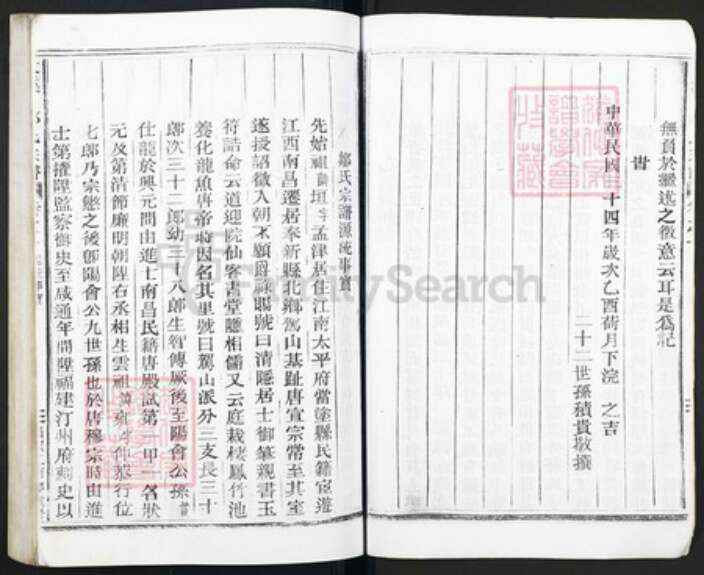 無負於繼述之微意云耳是為記
旹
中華民國 十四年歲次乙酉荷月下浣 之吉
二十二世孫積貴敬撰
鄒氏宗譜源流事實
先始祖 垣字孟津居住江南太平府當塗縣民籍宦遊
江西南昌遷居奉新縣北鄉駕山基趾唐宣宗常至其室
遂授詔徵入朝不願爵祿賜號曰清隱居士御筆親書玉
符誥命云道迎院仙客書堂聽相儒又云庭栽棲鳳竹池
養化龍魚唐帝時因名其里號曰駕山派外三支長三十
郎次三十二郎幼三十八郎生智傳厥後至陽會公孫
仕龍於興元間由進士南昌民籍唐殿試第一甲一名狀
元及第清節廉明朝陞右丞相生雲祖 字仲 行位
七郎乃宗懲之後卽陽會公九世孫也於唐穆宗時由進
士第擢陞監察御史至咸通年間陞福建汀州府刺史以
FamilySearch